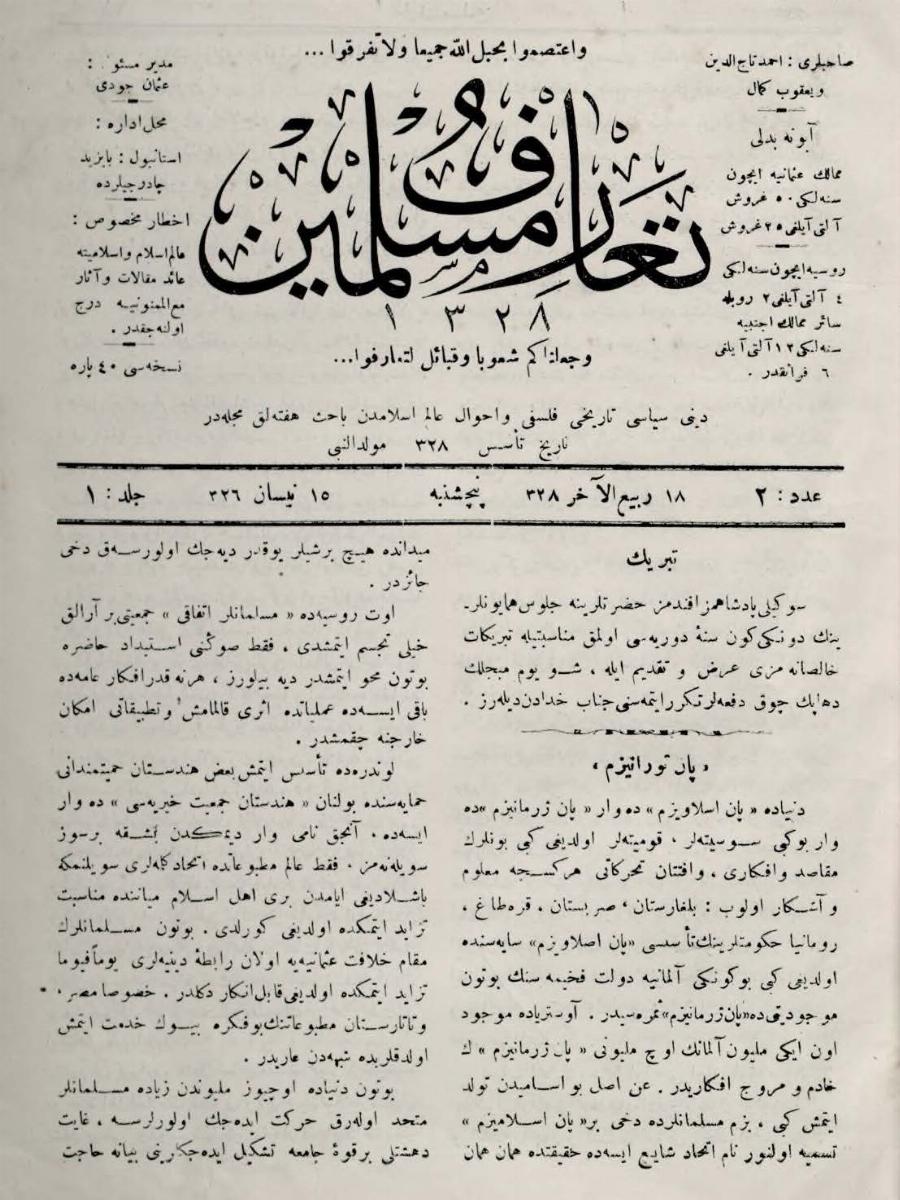 واعتصموا بحبل الله جميعا ولا تفرقوا ...
صاحبلری : احمد تاج الدین
و یعقوب کمال
آبونه بدلی
ممالك عثمانیه ایچون
سنه لکی ٥٠ غروش
آلتی آیلغی ٢٥ غروش
روسیه ایچون سنه لکی
٤ آلتی آیلغی ٢ روبله
سائر ممالك اجنبیه
سنه لکی ١٢ آلتی آیلغی
٦ فرانقدر .
تعارف مسلمین
١٣٢٨
وجعلناکم شعوبا وقبائل لتعارفوا...
مدیر مسئول :
عثمان جودی
محل اداره :
استانبول : بایزید
چادرجیلرده
اخطار مخصوص :
عالم اسلام و اسلامیته
عائد مقالات و آثار
مع الممنونیه درج
اولنه جقدر .
نسخه سی ٤٠ پاره
دینی سیاسی تاریخی فلسفی و احوال عالم اسلامدن باحث هفته لق مجله در
تاریخ تأسس ٣٢٨ مولد النبی
عدد : ٢
١٨ ربیع الآخر ٣٢٨
پنچشنبه
١٥ نیسان ٣٢٦
جلد : ١
تبریك
سوکیلی پادشاهمز افندمز حضرتلرینه جلوس همایونلر-
ینك دونکی کون سنهٔ دوریه سی اولمق مناسبتیله تبریکات
خالصانه مزی عرض و تقدیم ایله ، شو یوم مبجلك
دها پك چوق دفعه لر تکرر ایتمه سنی جناب خدادن دیله رز .
« پان تورانیزم »
دنیاده « پان اسلاویزم » ده وار « پان ژرمانیزم » ده
وار بوکبی سوسیته لر ، قومیته لر اولدیغی کبی بونلرك
مقاصد و افکاری ، و افتتان تحرکاتی هرکسجه معلوم
و آشکار اولوب : بلغارستان ، صربستان ، قره طاغ ،
رومانیا حکومتلرینك تأسسی «پان اصلاویزم» سایه سنده
اولدیغی کبی بوکونکی آلمانیه دولت فخیمه سنك بوتون
موجودیتی ده «پان ژرمانیزم» ثمره سیدر . آوستریاده موجود
اون ایکی ملیون آلمانك اوچ ملیونی « پان ژرمانیزم » ك
خادم و مروج افکاریدر . عن اصل بو اسامیدن تولد
ایتمش کبی ، بزم مسلمانلرده دخی بر « پان اسلامیزم »
تسمیه اولنور نام اتحاد شایع ایسه ده حقیقتده همان همان
میدانده هیچ برشیلر یوقدر دیه جك اولورسه ق دخی
جائزدر .
اوت روسیه ده « مسلمانلر اتفاقی » جمعیتی بر آرالق
خیلی تجسم ایتمشدی ، فقط صوکنی استبداد حاضره
بوتون محو ایتمشدر دیه بیلورز ، هرنه قدر افکار عامه ده
باقی ایسه ده عملیاتده اثری قالمامش و تطبیقاتی امکان
خارجنه چقمشدر .
لوندره ده تأسس ایتمش بعض هندستان حمیتمندانی
حمایه سنده بولنان « هندستان جمعیت خیریه سی » ده وار
ایسه ده ، آنجق نامی وار دیمکدن بشقه برسوز
سویله نه مز . فقط عالم مطبوعاتده اتحاد کله لری سویلنمکه
باشلادیغی ایامدن بری اهل اسلام میاننده مناسبت
تزاید ایتمکده اولدیغی کورلدی . بوتون مسلمانلرك
مقام خلافت عثمانیه یه اولان رابطهٔ دینیه لری یوماً فیوما
تزاید ایتمکده اولدیغی قابل انکار دکلدر . خصوصا مصر ،
و تاتارستان مطبوعاتنك بو فکره بیوك خدمت ایتمش
اولدقلریده شبهه دن عاریدر .
بوتون دنیاده اوچیوز ملیوندن زیاده مسلمانلر
متحد اوله رق حرکت ایده جك اولورلرسه ، غایت
دهشتلی بر قوهٔ جامعه تشکیل ایده جکلرینی بیانه حاجت